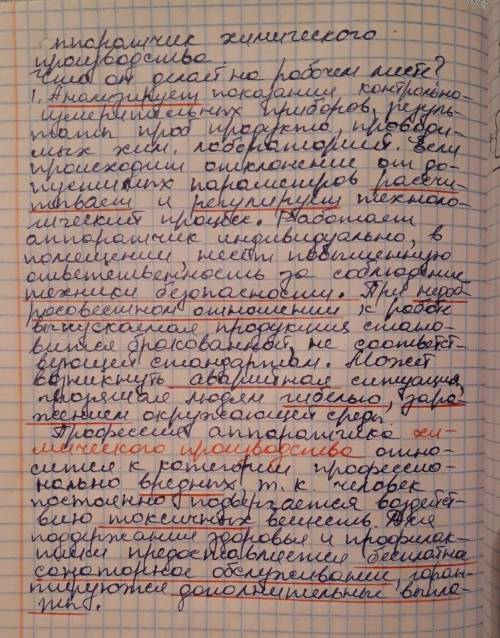 Аппаратчик химического
производства.
Что он делает на рабочем месте?
1. Анализирует показания контрольно-
измерительных приборов, резуль-
таты проб продукта, проводи-
мых хим. лабораторией. Если
происходит отклонение от до-
пустимых параметров рассчи-
тывает и регулирует техноло-
гический процесс. Работает
аппаратчик индивидуально, в
помещении, несет повышенную
ответственность за соблюдение
техники безопасности. При недоб-
росовестном отношении к работе
выпускаемая продукция стано-
вится бракованной, не соответст-
вующей стандартам. Может
возникнуть аварийная ситуация,
грозящая людям гибелью, зара-
жением окружающей среды.
Профессия аппаратчика хи-
мического производства отно-
сится к категории профессио-
нально вредных, т.к. человек
постоянно подвергается воздейст-
вию токсичных веществ. Для
поддержания здоровья и профилак-
тики предоставляется бесплатное
санаторное обслуживание, гаран-
тируются дополнительные выпла-
ты.